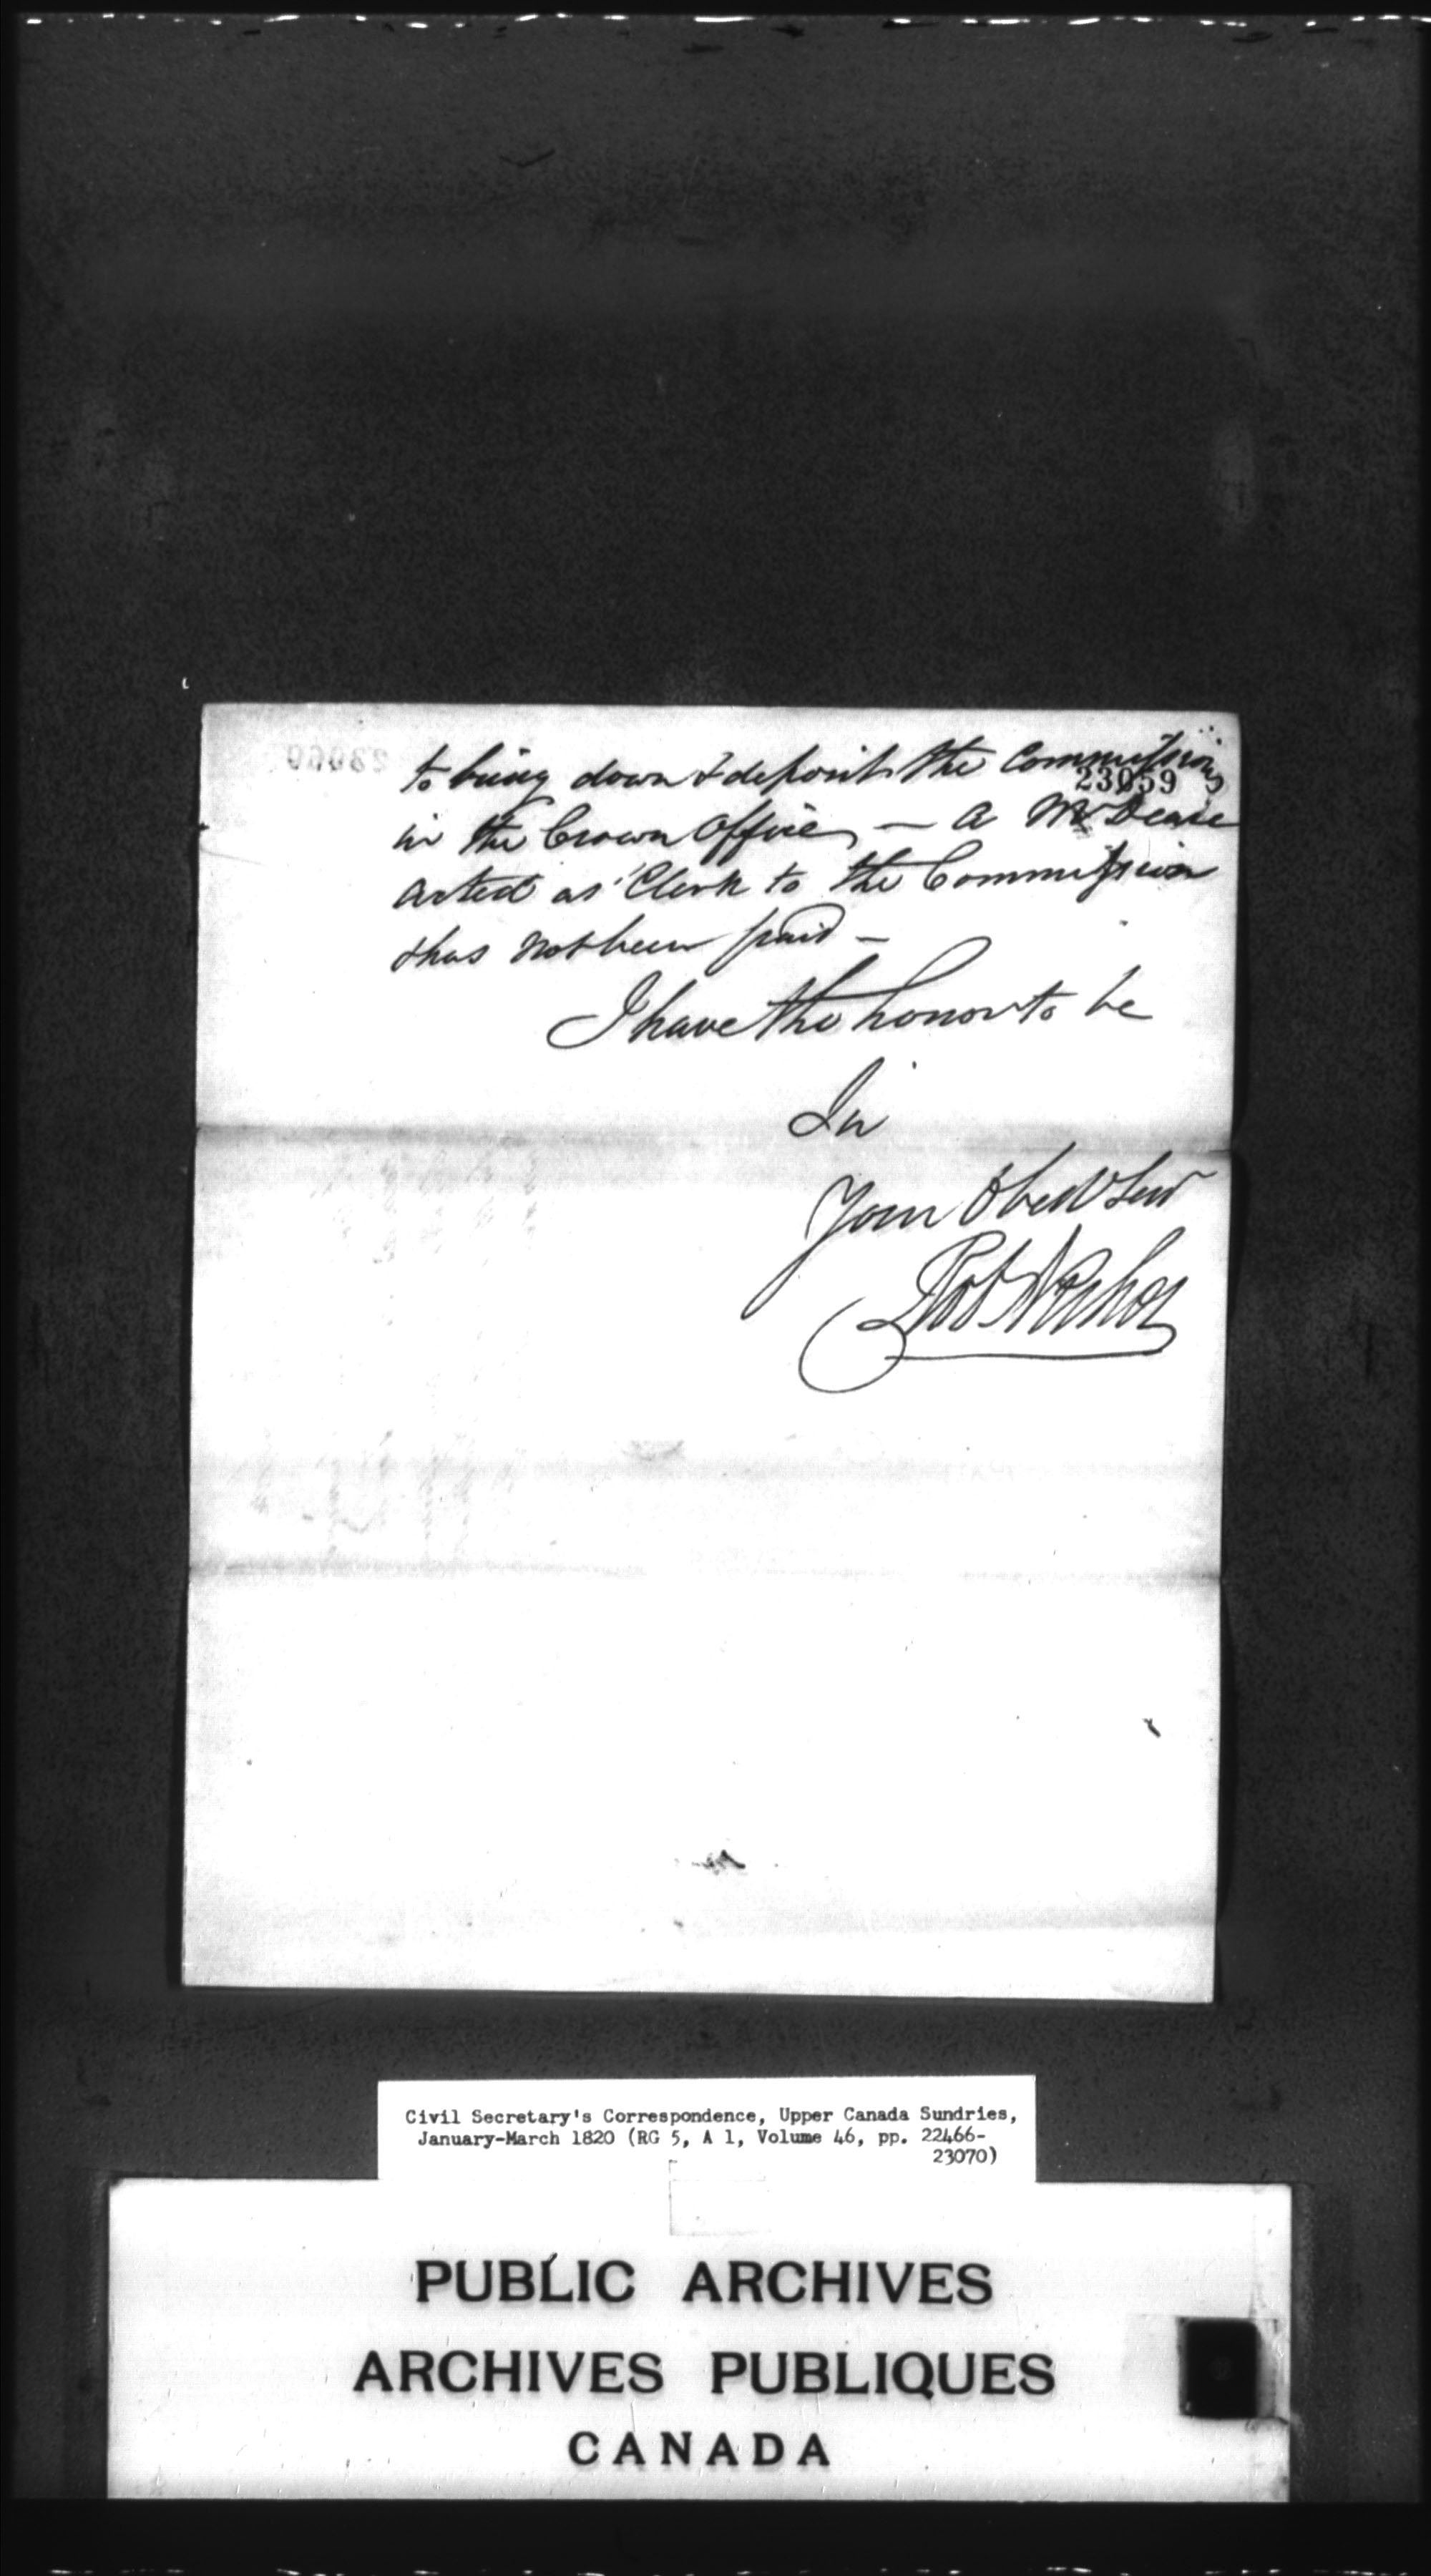 to bring down & deposit the Commissions
23059
in the Crown Office, — a Mr Dease
acted as Clerk to the Commission
& has not been paid —
I have the honor to be
Sir
Your Obedt Servt
Civil Secretary's Correspondence, Upper Canada Sundries,
January-March 1820 (RG 5, A 1, Volume 46, pp. 22466-
23070)
PUBLIC ARCHIVES
ARCHIVES PUBLIQUES
CANADA